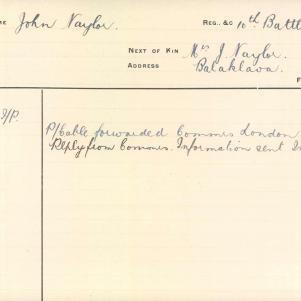 ME John Naylor. REG., &C 10th Battl
NEXT OF KIN Mrs J. Naylor.
ADDRESS Balaklava.
F
P/Cable forwarded Commrs London.
Reply from Commrs. Information sent In